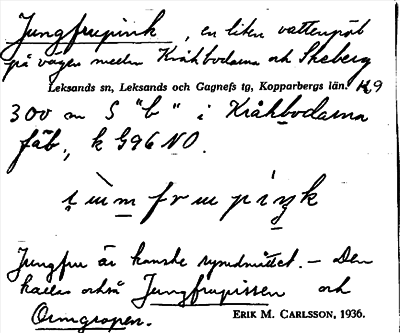 Jungfrupink, en liten vattenpöl
på vägen mellan Kråkbodarna och Skeberg
Leksands sn, Leksands och Gagnefs tg, Kopparbergs län. 129
300 m S "b" i Kråkbodarna
fäb., k G96 NO.
Jungfru är kanske rymdmåttet. – Den
kallas också Jungfrupissen och
Ormgropen. ERIK M. CARLSSON, 1936.